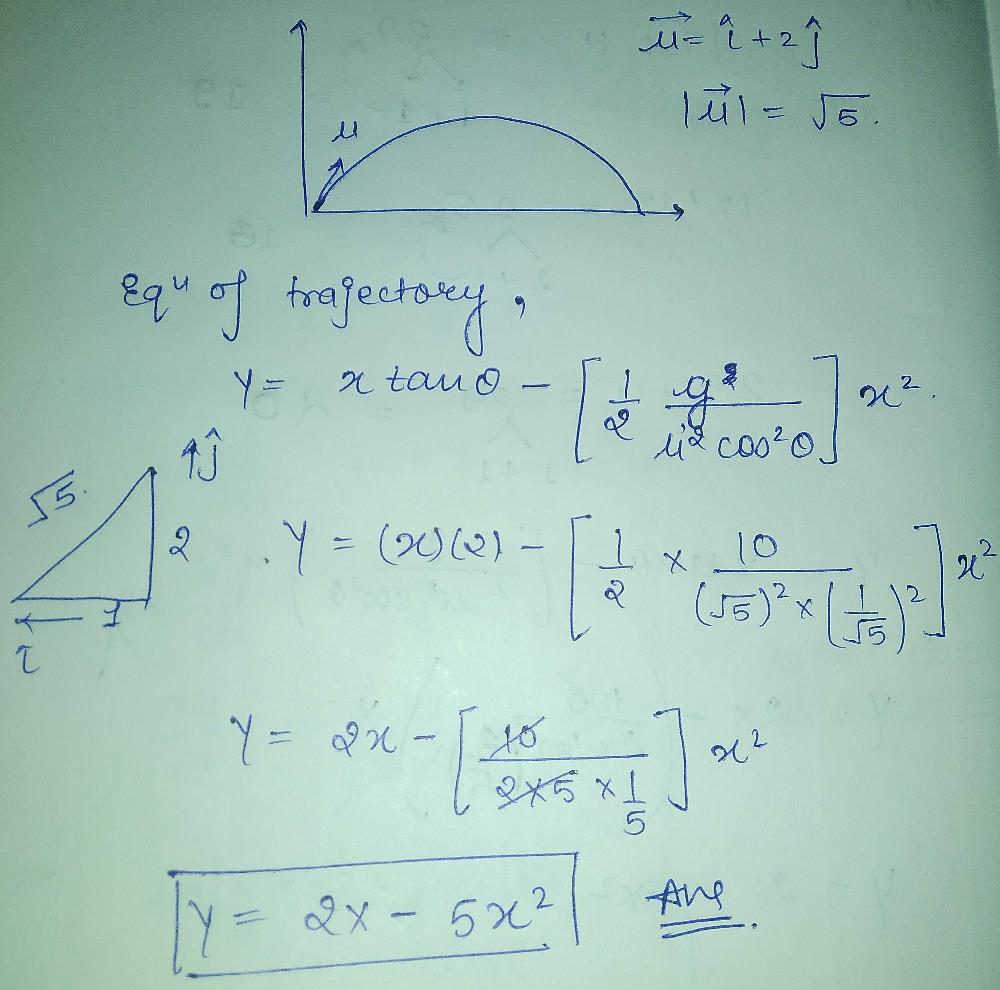 u⃗ = î + 2ĵ
|u⃗| = √5.
u
Eqⁿ of trajectory,
Y = x tanθ - [1/2 g/(u² cos²θ)] x².
√5.
↑ĵ
2
1
î
. Y = (x)(2) - [1/2 × 10/((√5)² × (1/√5)²)] x²
Y = 2x - [10/(2×5 × 1/5)] x²
Y = 2x - 5x²
Ans.